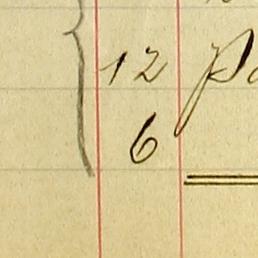 12
6